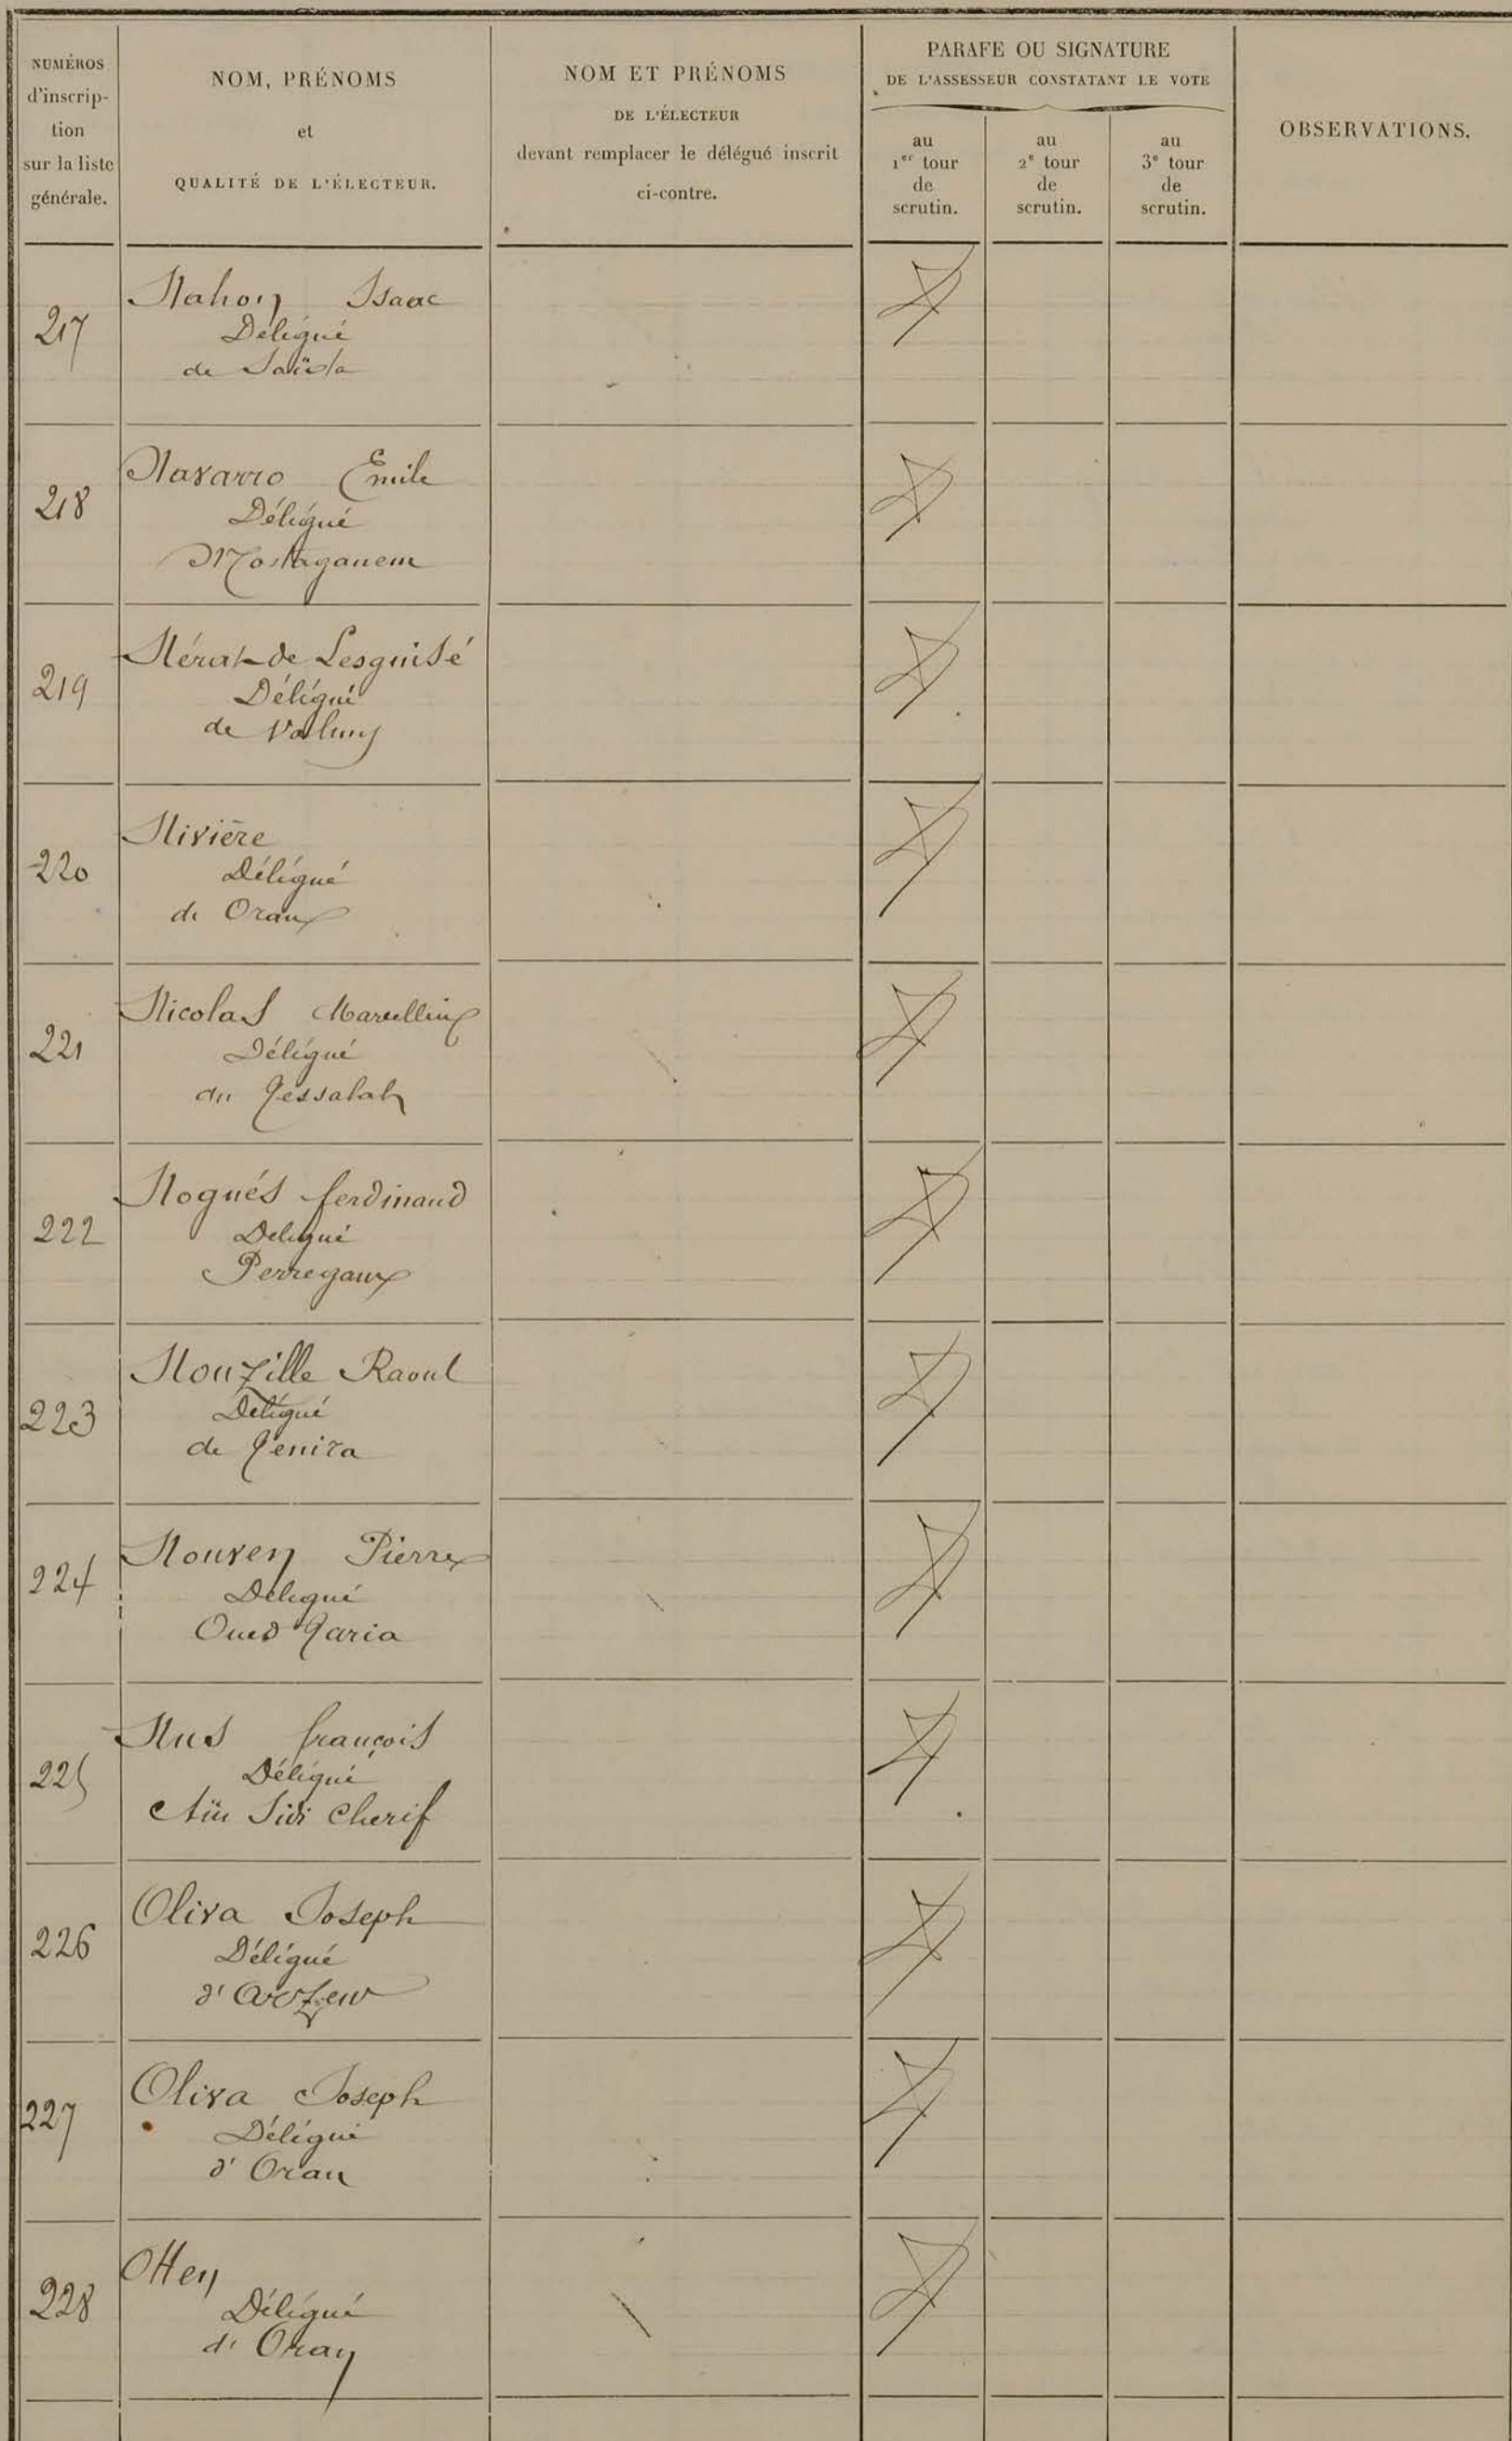 NUMÉROS
d'inscrip-
tion
sur la liste
générale.
NOM, PRÉNOMS
et
QUALITÉ DE L'ÉLECTEUR.
NOM ET PRÉNOMS
DE L'ÉLECTEUR
devant remplacer le délégué inscrit
ci-contre.
PARAFE OU SIGNATURE
DE L'ASSESSEUR CONSTATANT LE VOTE
au
1er tour
de
scrutin.
au
2e tour
de
scrutin.
au
3e tour
de
scrutin.
OBSERVATIONS.
217
Nahon Isaac
Délégué
de Saïda
218
Navarro Emile
Délégué
Mostaganem
219
Nérat de Lesguisé
Délégué
de Valmy
220
Nivière
Délégué
de Oran
221
Nicolas Marcellin
Délégué
du Tessalah
222
Nogués ferdinand
Delegué
Perregaux
223
Nouzille Raoul
Délégué
de Tenira
224
Nouren Pierre
Délegué
Oued Taria
225
Nus françois
Délégué
Aïn Sidi Cherif
226
Oliva Joseph
Délégué
d'Arzew
227
Oliva Joseph
Délégué
d'Oran
228
Otten
Délégué
d'Oran